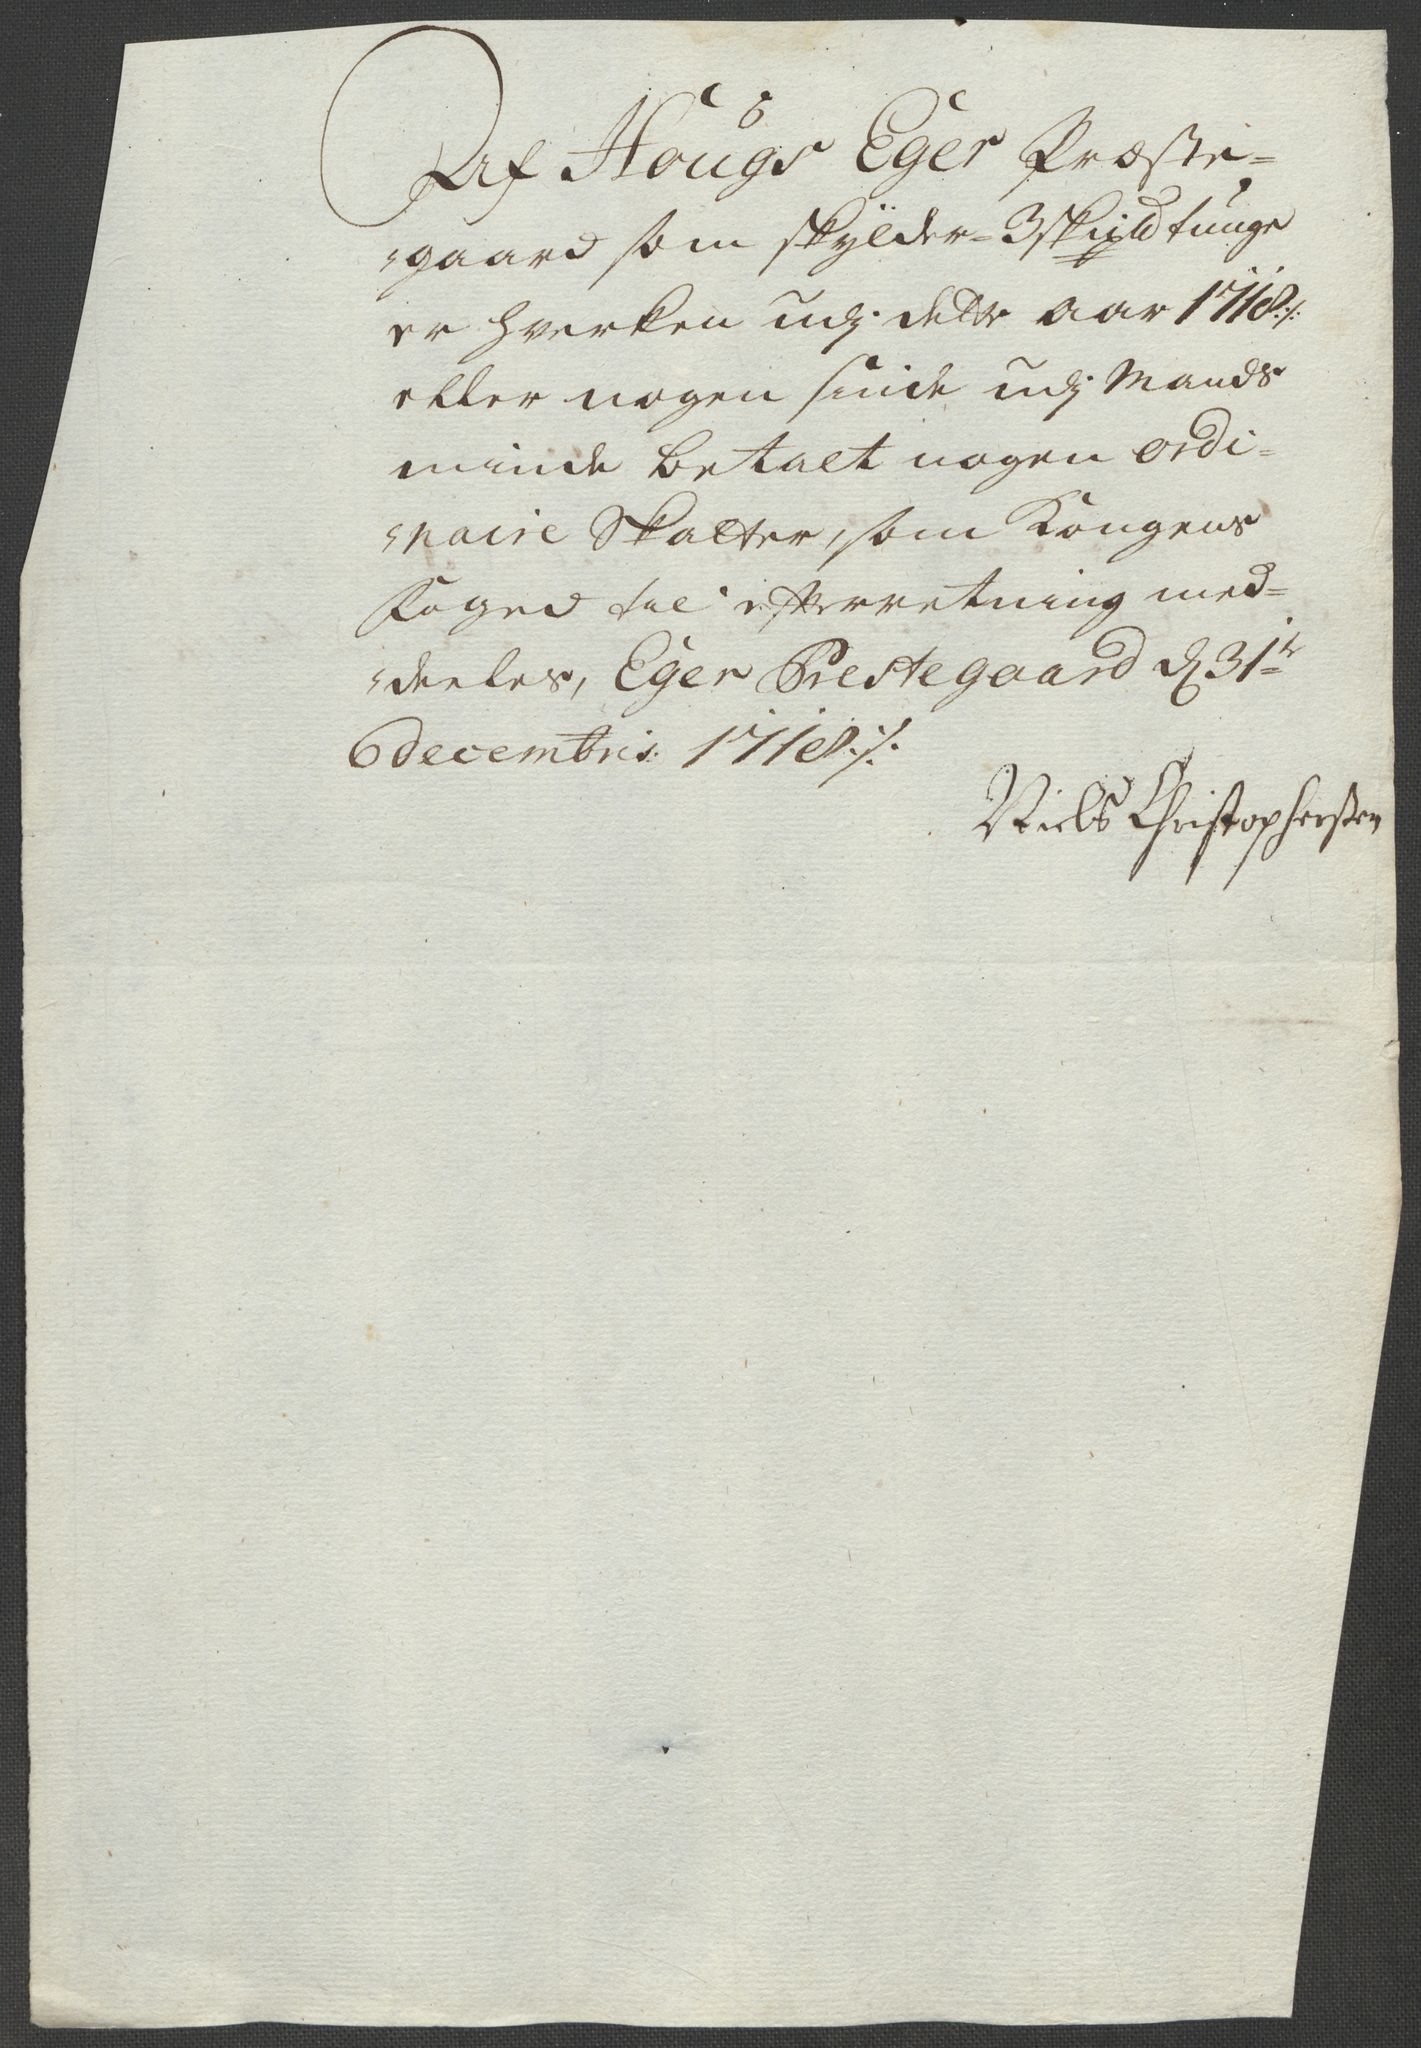 Af Hougs Eger Præste=
gaard som skÿlder= 3 skippd tunge
er hverken udj dette aar 1718 ./.
eller nogen sinde udj Mands
minde betalt nogen ordi=
naire Skatter, som Kongens
Foged til efterretning med=
deeles, Eger Prestegaard d 31te
decembris 1718 ./.
Niels Christophersen